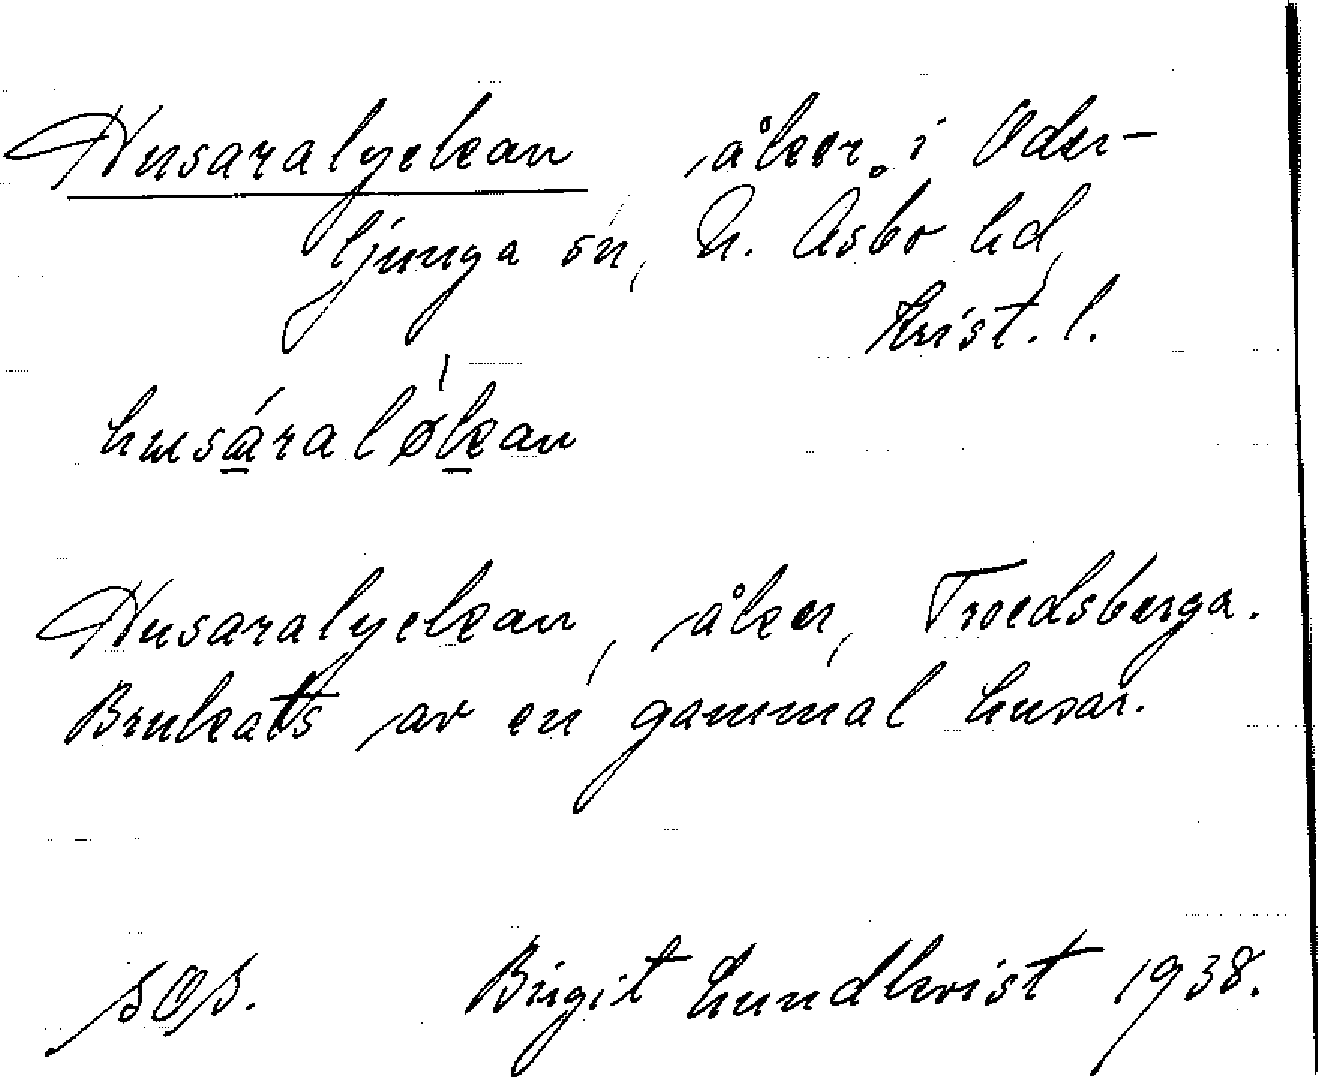 Husaralyckan åker i Oder-
ljunga sn, N. Åsbo hd,
Krist. l.
husáralø̍kan
Husaralyckan, åker, Troedsberga.
Brukats av en gammal husar.
SOS. Birgit Lundkvist 1938.